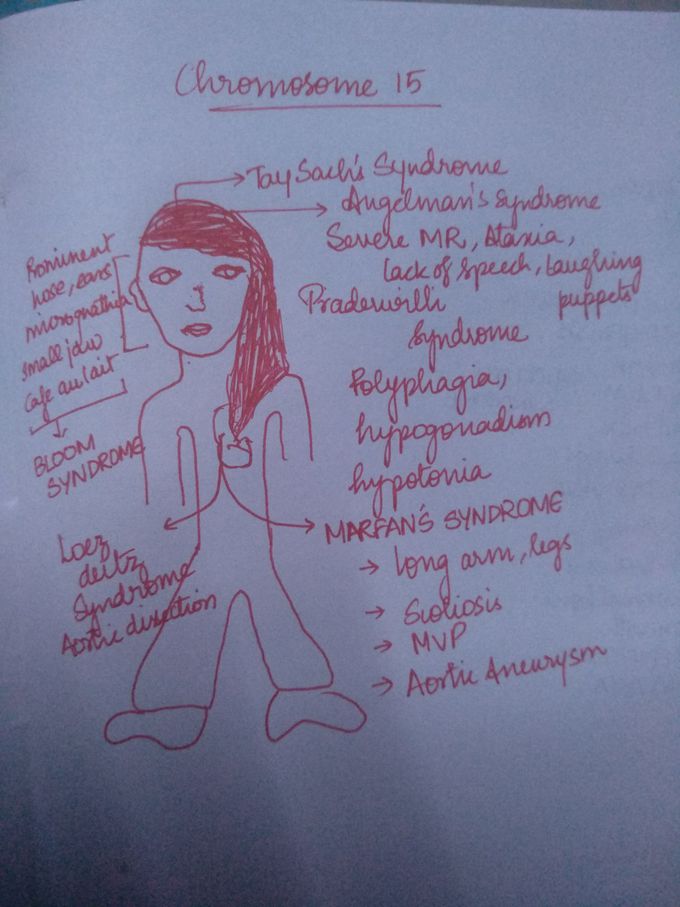 Chromosome 15
Tay Sach's Syndrome
Angelman's Syndrome
Severe MR, Ataxia,
lack of speech, Laughing
puppets
Pradewilli
Syndrome
Polyphagia,
hypogonadism
hypotonia
Prominent
nose, ears
micrognathia
small jaw
Cafe au lait
BLOOM
SYNDROME
Loez
deitz
Syndrome
Aortic disection
MARFAN'S SYNDROME
→ Long arm, legs
→ Scoliosis
→ MVP
→ Aortic Aneurysm